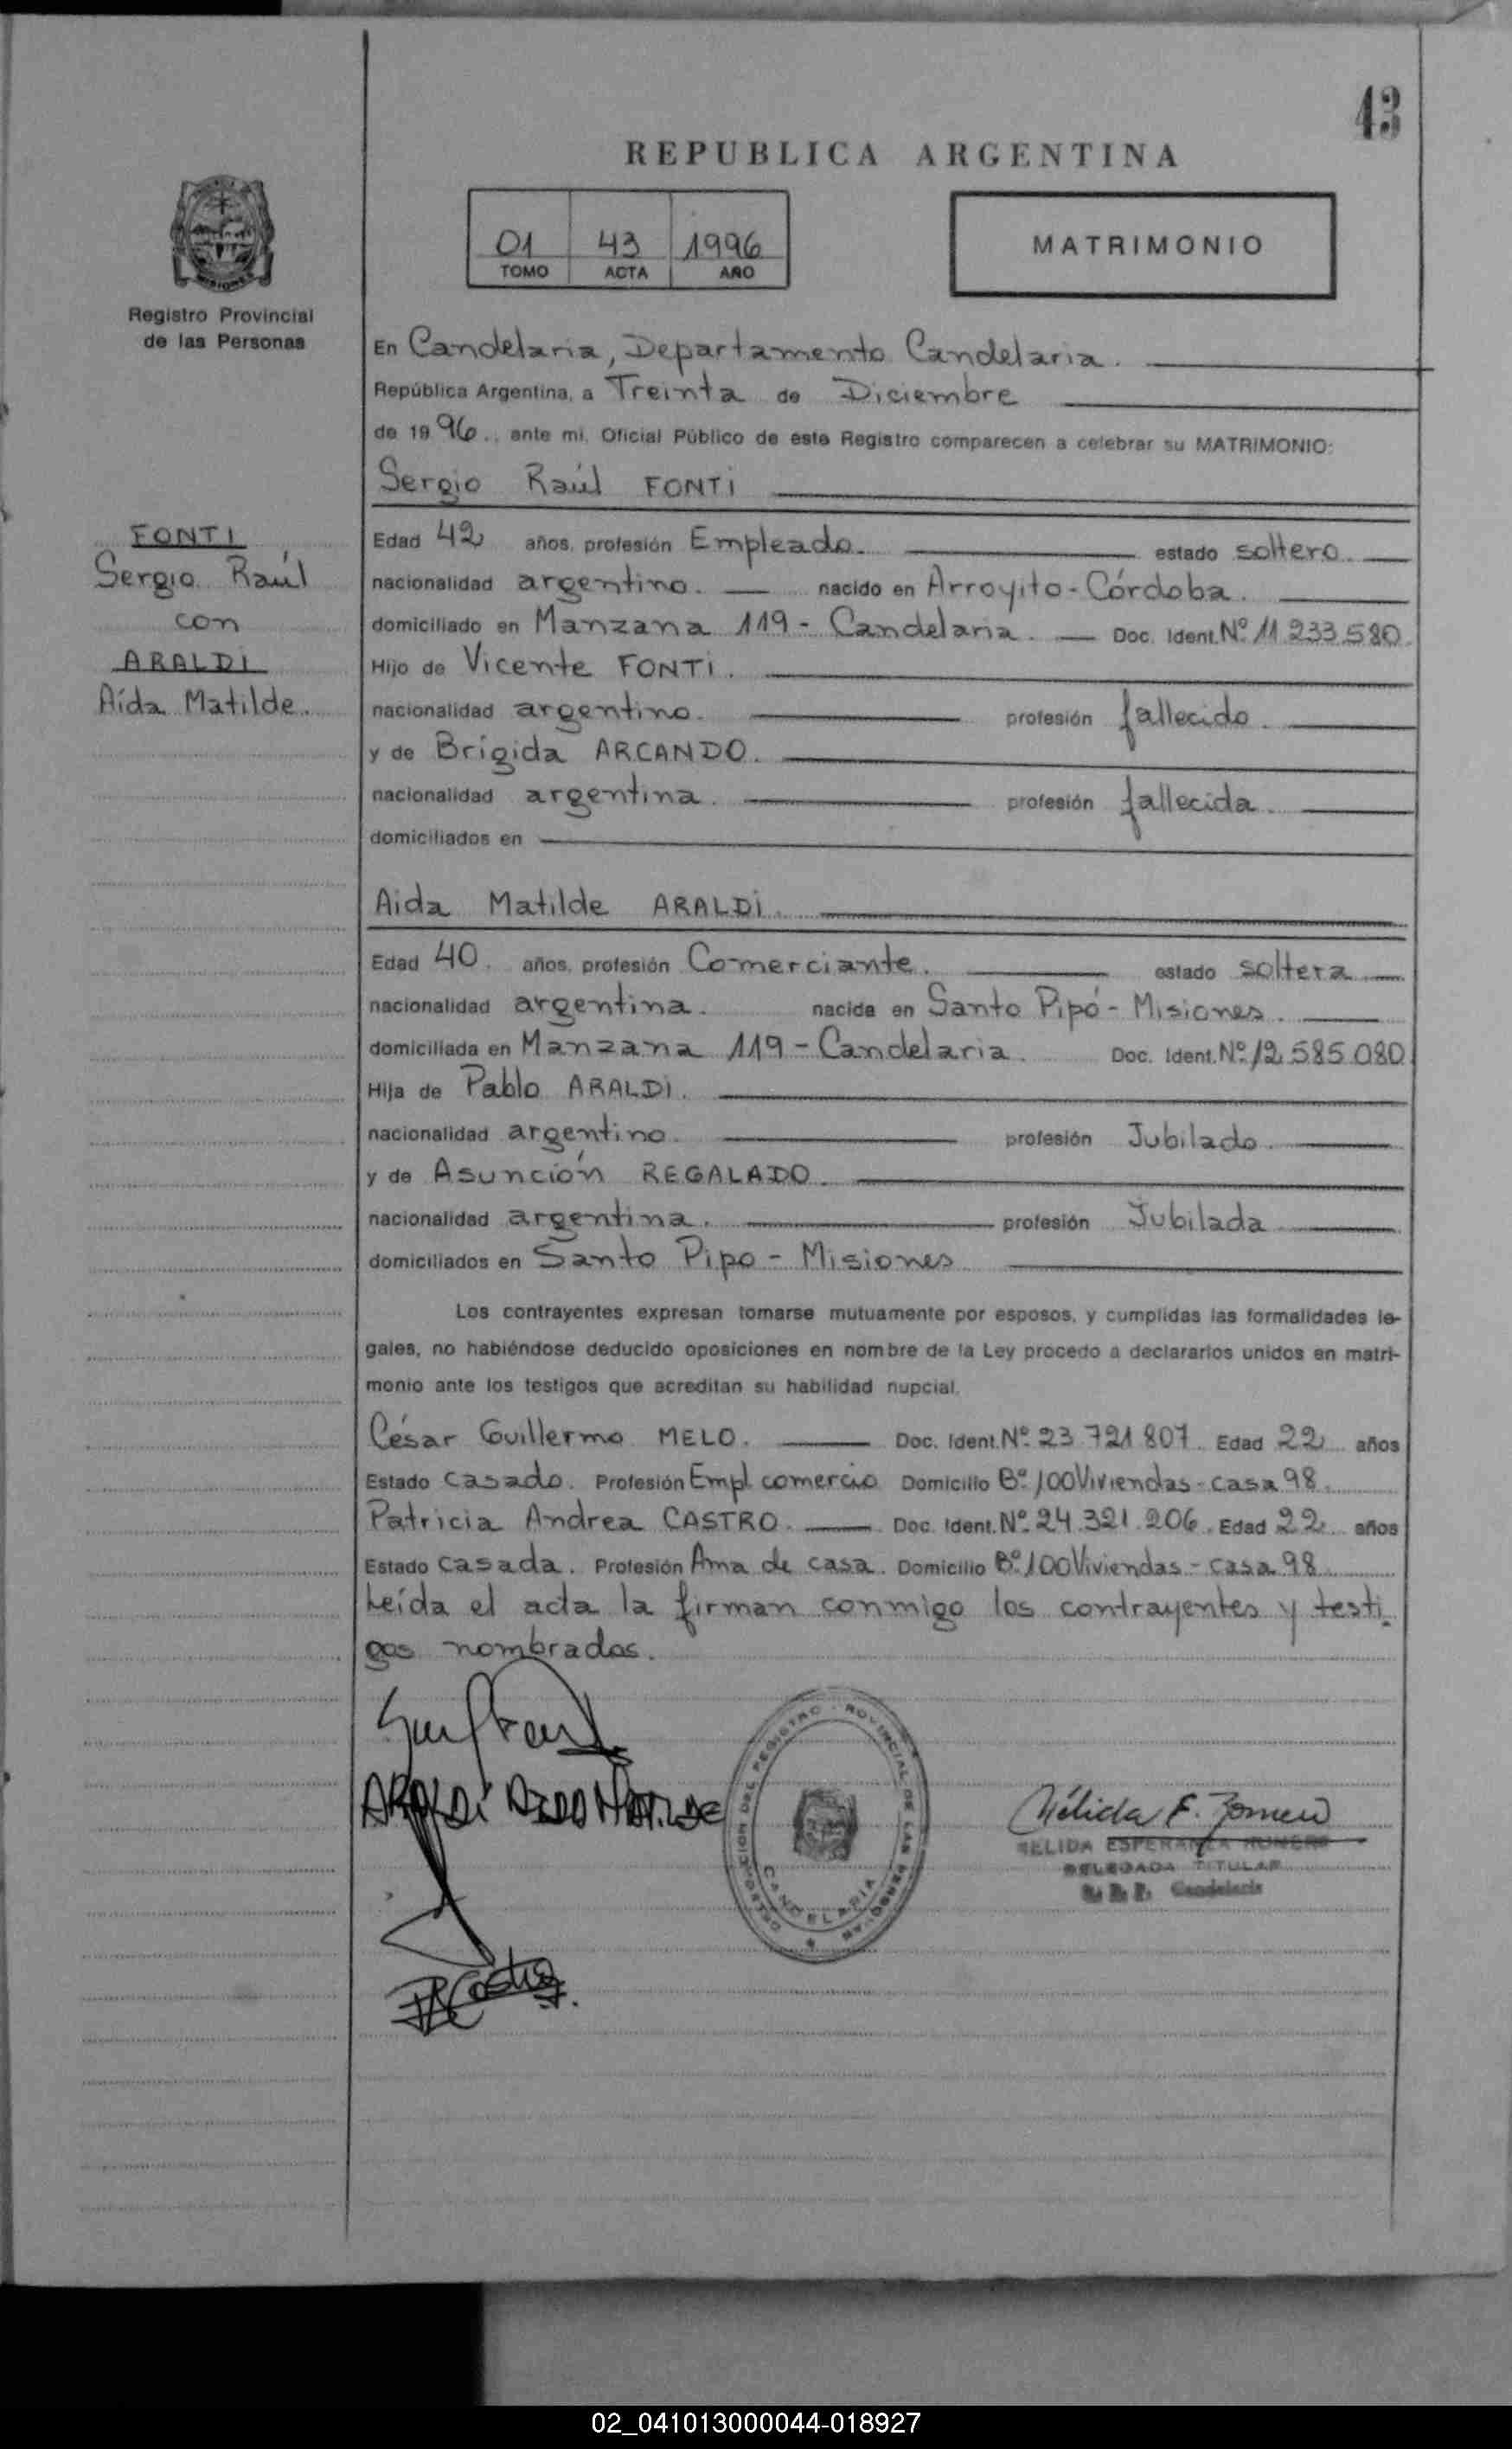 43
REPUBLICA ARGENTINA
01 43 1996
TOMO ACTA AÑO
MATRIMONIO
MISIONES
Registro Provincial
de las Personas
En Candelaria, Departamento Candelaria.
República Argentina, a Treinta de Diciembre
de 1996., ante mi, Oficial Público de este Registro comparecen a celebrar su MATRIMONIO:
Sergio Raúl FONTI
FONTI
Sergio Raúl
con
ARALDI
Aída Matilde.
Edad 42 años, profesión Empleado. estado soltero.
nacionalidad argentino. nacido en Arroyito-Córdoba.
domiciliado en Manzana 119 - Candelaria. Doc. Ident. Nº 11.233.580.
Hijo de Vicente FONTI.
nacionalidad argentino. profesión fallecido.
y de Brígida ARCANDO.
nacionalidad argentina. profesión fallecida.
domiciliados en
Aida Matilde ARALDI.
Edad 40. años, profesión Comerciante. estado soltera
nacionalidad argentina. nacida en Santo Pipó - Misiones.
domiciliada en Manzana 119 - Candelaria. Doc. Ident. Nº 12.585.080
Hija de Pablo ARALDI.
nacionalidad argentino. profesión Jubilado.
y de Asunción REGALADO.
nacionalidad argentina. profesión Jubilada
domiciliados en Santo Pipo - Misiones
Los contrayentes expresan tomarse mutuamente por esposos, y cumplidas las formalidades le-
gales, no habiéndose deducido oposiciones en nombre de la Ley procedo a declararlos unidos en matri-
monio ante los testigos que acreditan su habilidad nupcial.
César Guillermo MELO. Doc. Ident. Nº 23.721.807. Edad 22 años
Estado casado. Profesión Empl. comercio Domicilio Bº 100 Viviendas - casa 98.
Patricia Andrea CASTRO. Doc. Ident. Nº 24.321.206. Edad 22 años
Estado casada. Profesión Ama de casa. Domicilio Bº 100 Viviendas - casa 98
Leída el acta la firman conmigo los contrayentes y testi-
gos nombrados.
ARALDI AIDA MATILDE
CANDELARIA
Nélida E. Romero
NELIDA ESPERANZA ROMERO
DELEGADA TITULAR
R. P. P. Candelaria
PACastro
02_041013000044-018927